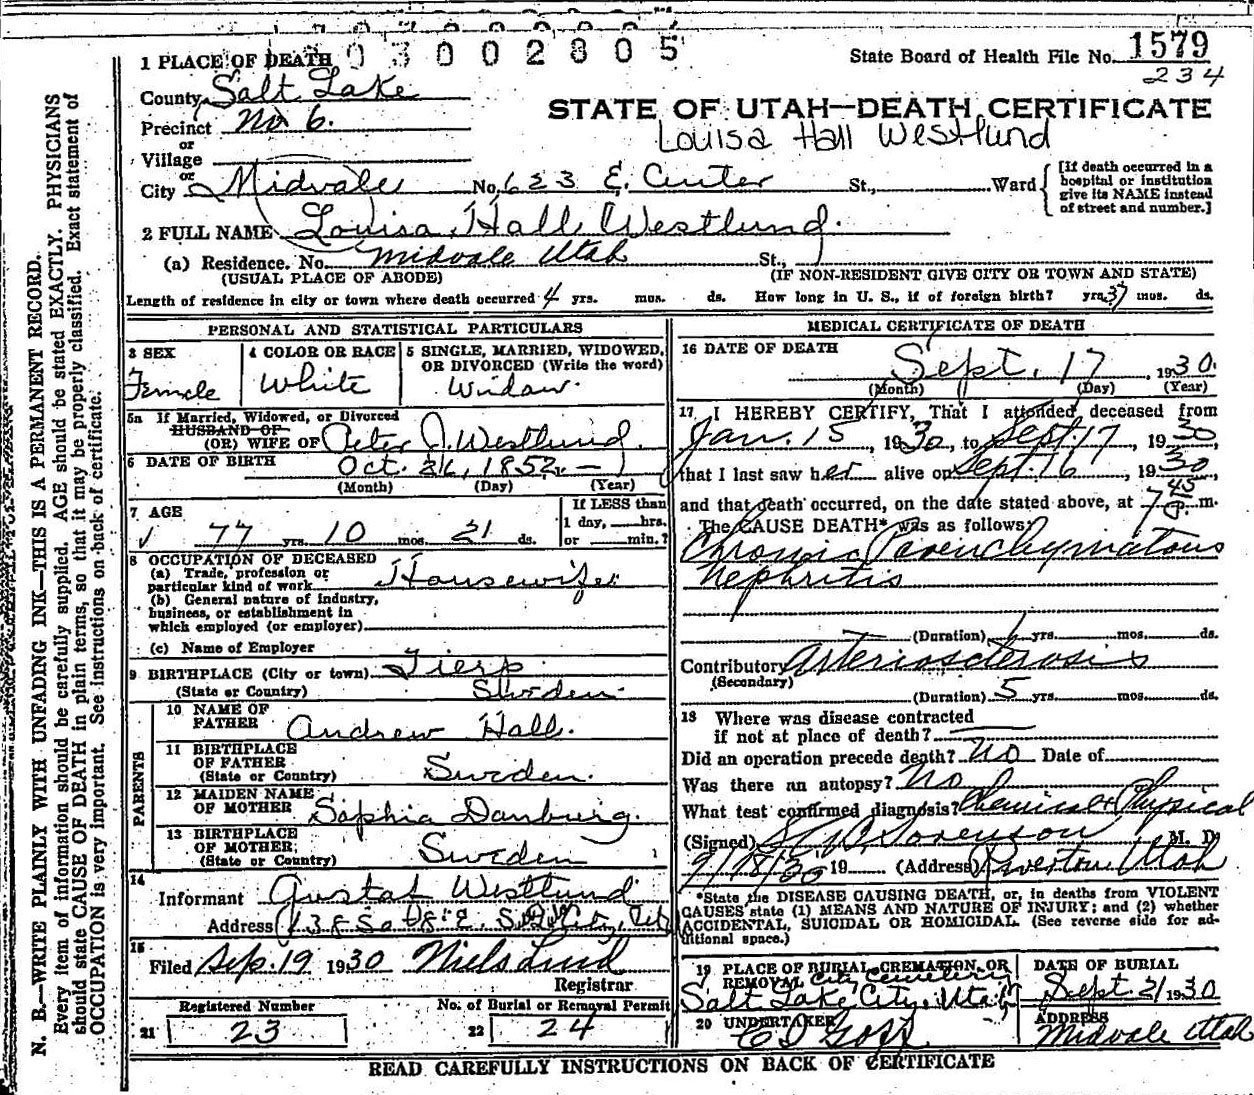 0 3 0 0 2 8 0 5
State Board of Health File No. 1579
234
1 PLACE OF DEATH
County Salt Lake
STATE OF UTAH—DEATH CERTIFICATE
Precinct No 6.
Louisa Hall Westlund
or
Village
City or Midvale No. 623 E. Center St., Ward
[If death occurred in a hospital or institution give its NAME instead of street and number.]
2 FULL NAME Louisa Hall Westlund.
(a) Residence. No. Midvale Utah St.,
(USUAL PLACE OF ABODE) (IF NON-RESIDENT GIVE CITY OR TOWN AND STATE)
Length of residence in city or town where death occurred 4 yrs. mos. ds. How long in U. S., if of foreign birth? yrs. 37 mos. ds.
PERSONAL AND STATISTICAL PARTICULARS
3 SEX
Female
4 COLOR OR RACE
White
5 SINGLE, MARRIED, WIDOWED, OR DIVORCED (Write the word)
Widow.
5a If Married, Widowed, or Divorced
HUSBAND OF
(OR) WIFE OF Peter J. Westlund.
6 DATE OF BIRTH Oct. 26, 1852
(Month) (Day) (Year)
7 AGE
77 yrs. 10 mos. 21 ds.
If LESS than
1 day, hrs.
or min.?
8 OCCUPATION OF DECEASED
(a) Trade, profession or
particular kind of work Housewife
(b) General nature of industry,
business, or establishment in
which employed (or employer)
(c) Name of Employer
9 BIRTHPLACE (City or town) Tierp
(State or Country) Sweden.
PARENTS
10 NAME OF
FATHER Andrew Hall.
11 BIRTHPLACE
OF FATHER
(State or Country) Sweden.
12 MAIDEN NAME
OF MOTHER Sophia Danburg.
13 BIRTHPLACE
OF MOTHER
(State or Country) Sweden
14
Informant Gustaf Westlund
Address
15
Filed Sep. 19 1930 Niels Lind
Registrar
Registered Number
21 23
No. of Burial or Removal Permit
22 24
MEDICAL CERTIFICATE OF DEATH
16 DATE OF DEATH
Sept. 17, 1930.
(Month) (Day) (Year)
17 I HEREBY CERTIFY, That I attended deceased from
Jan. 15, 1930, to Sept. 17, 1930,
that I last saw her alive on Sept. 16, 1930,
and that death occurred, on the date stated above, at 7 45 m.
The CAUSE DEATH* was as follows:
Chronic Parenchymatous
Nephritis
(Duration) 1 yrs. mos. ds.
Contributory Arteriosclerosis
(Secondary)
(Duration) 5 yrs. mos. ds.
18 Where was disease contracted
if not at place of death?
Did an operation precede death? No Date of
Was there an autopsy? No
What test confirmed diagnosis? Chemical & Physical
(Signed) Sorenson M. D.
9/18/30 19 (Address) Riverton Utah
*State the DISEASE CAUSING DEATH, or, in deaths from VIOLENT
CAUSES state (1) MEANS AND NATURE OF INJURY; and (2) whether
ACCIDENTAL, SUICIDAL OR HOMICIDAL. (See reverse side for ad-
ditional space.)
19 PLACE OF BURIAL, CREMATION, OR
REMOVAL City Cemetery
Salt Lake City, Utah
DATE OF BURIAL
Sept. 21 1930
20 UNDERTAKER
Goff
ADDRESS
Midvale Utah
READ CAREFULLY INSTRUCTIONS ON BACK OF CERTIFICATE
N. B.—WRITE PLAINLY WITH UNFADING INK—THIS IS A PERMANENT RECORD.
Every item of information should be carefully supplied. AGE should be stated EXACTLY. PHYSICIANS
should state CAUSE OF DEATH in plain terms, so that it may be properly classified. Exact statement of
OCCUPATION is very important. See instructions on back of certificate.